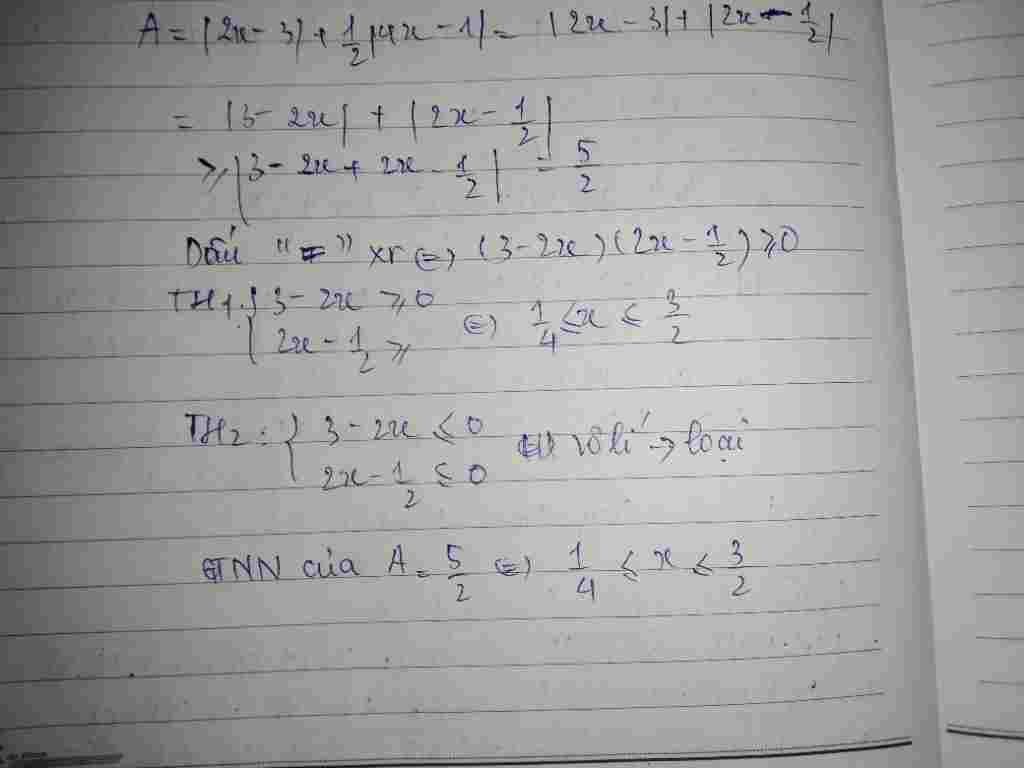 A = |2x - 3| + 1/2 |4x - 1| = |2x - 3| + |2x - 1/2|
= |3 - 2x| + |2x - 1/2|
≥ |3 - 2x + 2x - 1/2| = 5/2
Dấu "=" xr ⇔ (3 - 2x)(2x - 1/2) ≥ 0
TH1: { 3 - 2x ≥ 0
2x - 1/2 ≥ ⇔ 1/4 ≤ x ≤ 3/2
TH2: { 3 - 2x ≤ 0
2x - 1/2 ≤ 0 vô lí → loại
GTNN của A = 5/2 ⇔ 1/4 ≤ x ≤ 3/2